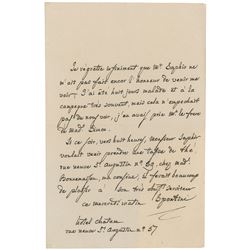 Je régrette infiniment que Mr Saphir ne
m'ait pas fait encor l'honneur de venir me
voir. J'ai été huit jours malade et à la
campagne très souvent, mais cela n'empechait
pas du me voir, j'en avais prié Mr le frere
de Mad.
Si ce soir, vers huit heures, monsieur Saphir
voulait venir prendre une tasse de thé
rue neuve St Augustin no chez mad.
ma cousine, il me ferait beaucoup
de plaisir à son très aff. Serviteur
ce mercredi matin Spontini
hotel chatam
rue neuve St Augustin no 57